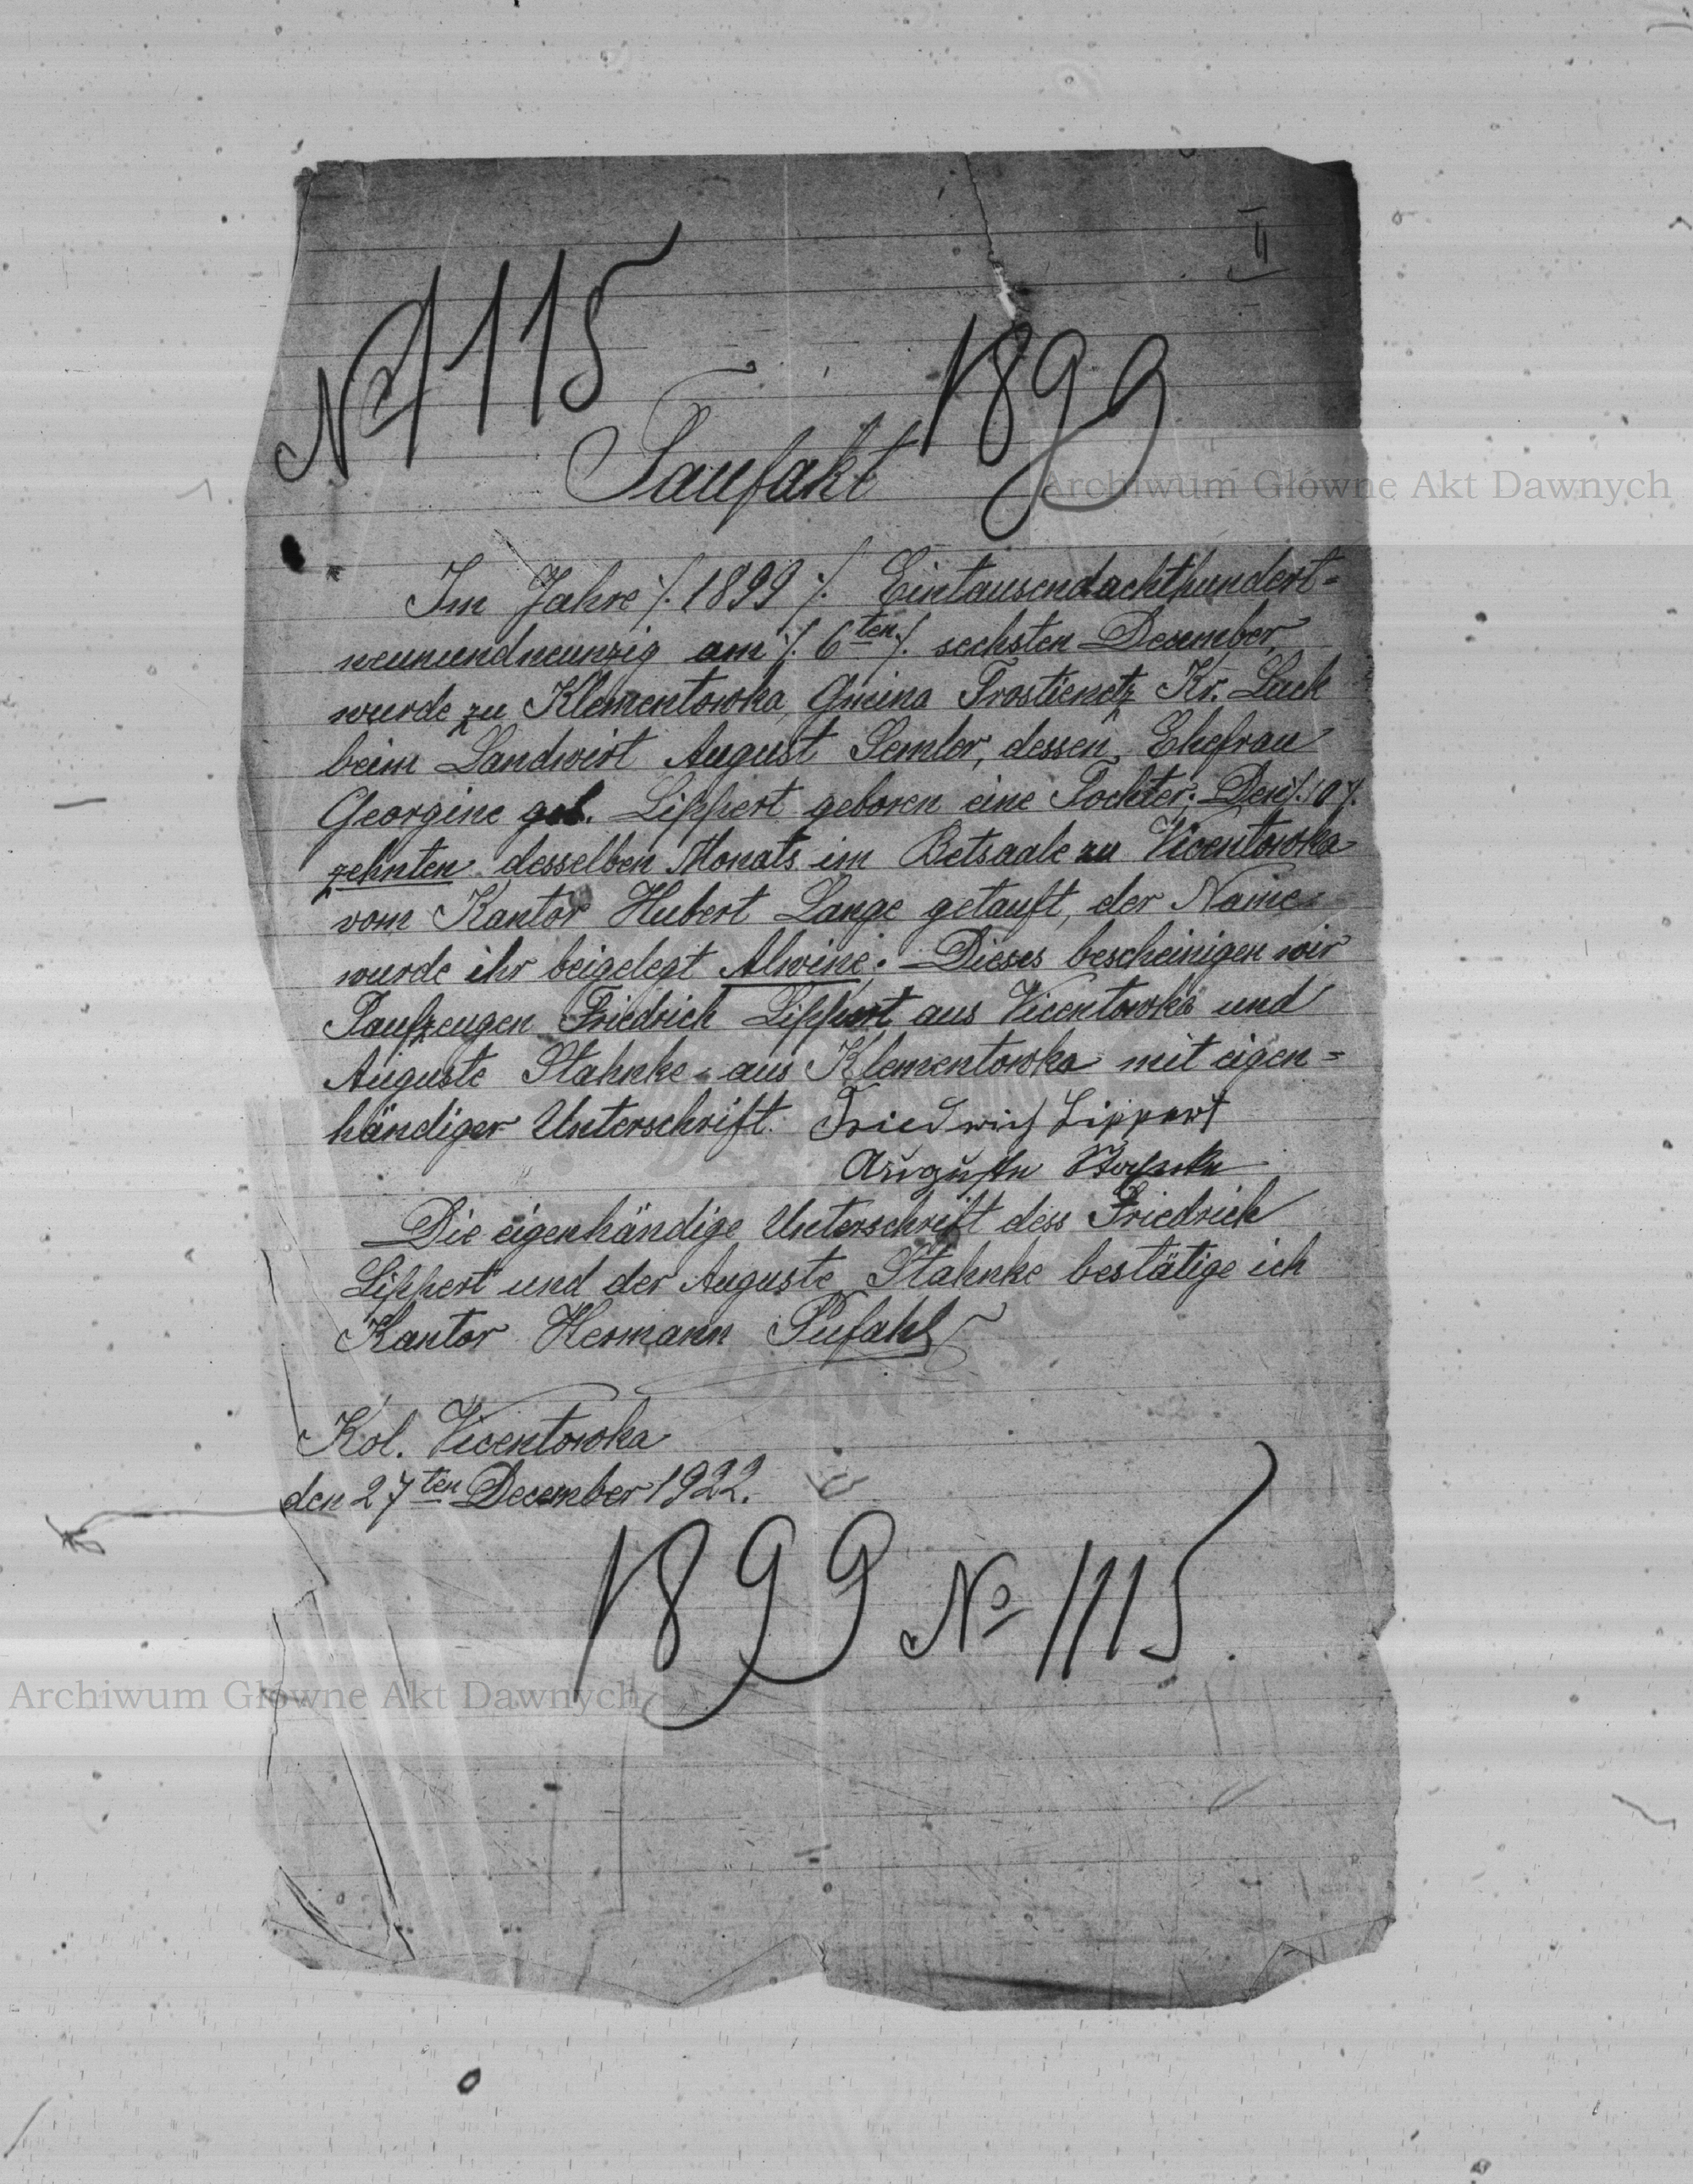 II
№ 1115
1899
Taufakt
Im Jahre ·/. 1899 ·/. Eintausendachthundert-
neunundneunzig am ·/. 6ten ·/. sechsten Desember,
wurde zu Klementowka, Gmina Trostienetz Kr. Luck
beim Landwirt August Semler, dessen Ehefrau
Georgine geb. Lippert geboren eine Tochter. Den ·/. 10 ·/.
zehnten desselben Monats im Betsaale zu Vicentowka
vom Kantor Hubert Lange getauft, der Name
wurde ihr beigelegt Alwine. Dieses bescheinigen wir
Taufzeugen Friedrich Lippert aus Vicentowka und
Auguste Stahnke aus Klementowka mit eigen-
händiger Unterschrift. Friedrich Lippert
Auguste Stahnke
Die eigenhändige Unterschrift dess Friedrich
Lippert und der Auguste Stahnke bestätige ich
Kantor Hermann Pufahl
Kol. Vicentowka
den 27ten December 1922.
1899 № 1115.
Archiwum Główne Akt Dawnych
Archiwum Główne Akt Dawnych